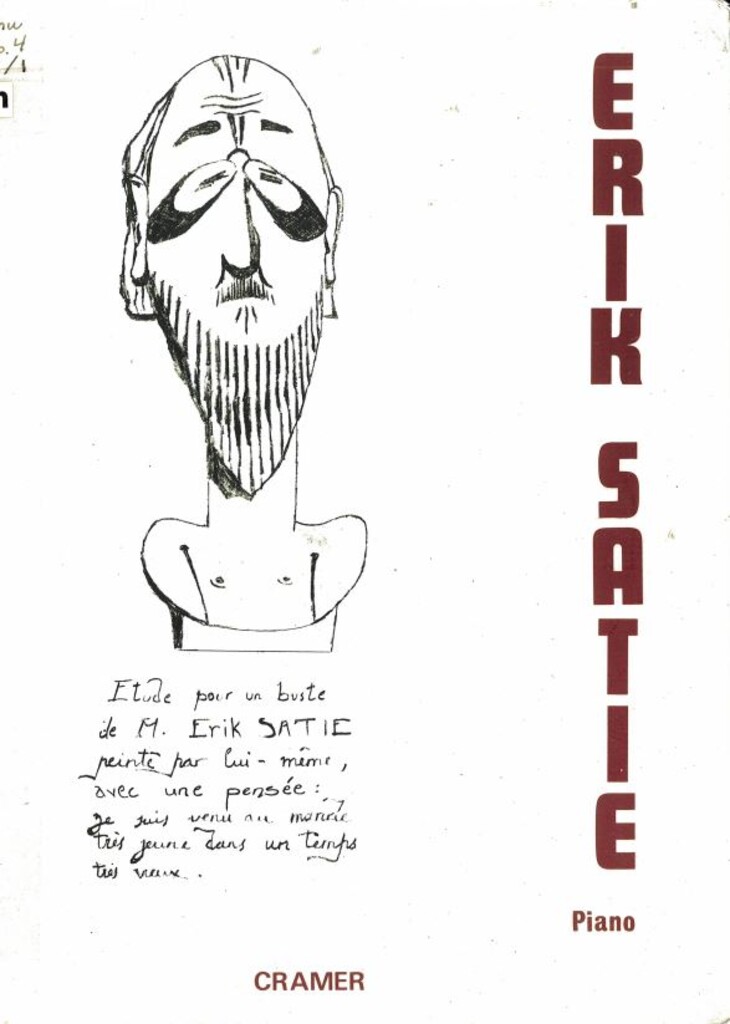 o.4
/1
n
ERIK SATIE
Etude pour un buste
de M. Erik SATIE
peinte par lui-même,
avec une pensée :
je suis venu au monde
très jeune dans un temps
très vieux.
Piano
CRAMER